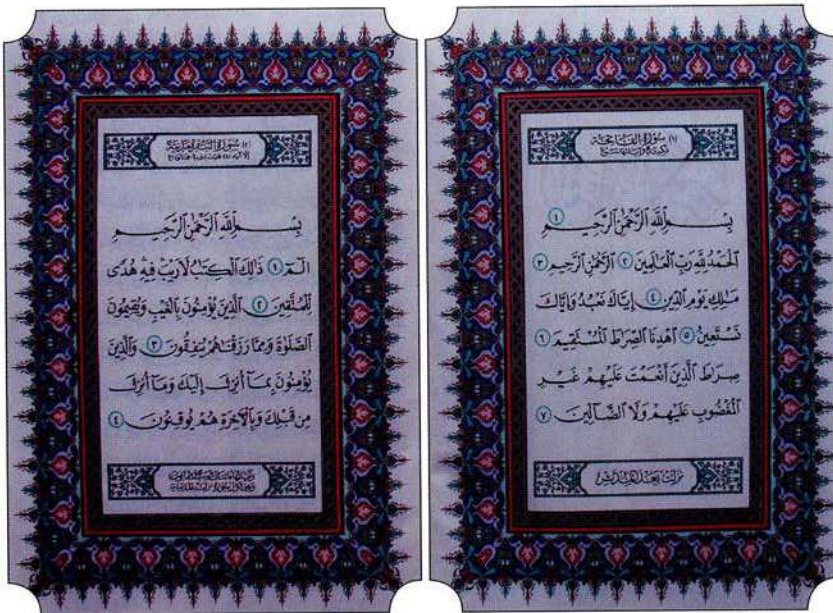 (١) سورة الفاتحة
مكية وآياتها سبع
بِسْمِ ٱللَّهِ ٱلرَّحْمَٰنِ ٱلرَّحِيمِ ١
ٱلْحَمْدُ لِلَّهِ رَبِّ ٱلْعَالَمِينَ ٢ ٱلرَّحْمَٰنِ ٱلرَّحِيمِ ٣
مَالِكِ يَوْمِ ٱلدِّينِ ٤ إِيَّاكَ نَعْبُدُ وَإِيَّاكَ
نَسْتَعِينُ ٥ ٱهْدِنَا ٱلصِّرَاطَ ٱلْمُسْتَقِيمَ ٦
صِرَاطَ ٱلَّذِينَ أَنْعَمْتَ عَلَيْهِمْ غَيْرِ
ٱلْمَغْضُوبِ عَلَيْهِمْ وَلَا ٱلضَّآلِّينَ ٧
نزلت بعد المدثر
(٢) سورة البقرة مدنية
بِسْمِ ٱللَّهِ ٱلرَّحْمَٰنِ ٱلرَّحِيمِ
الٓمٓ ١ ذَٰلِكَ ٱلْكِتَٰبُ لَا رَيْبَ فِيهِ هُدًى
لِّلْمُتَّقِينَ ٢ ٱلَّذِينَ يُؤْمِنُونَ بِٱلْغَيْبِ وَيُقِيمُونَ
ٱلصَّلَوٰةَ وَمِمَّا رَزَقْنَاهُمْ يُنفِقُونَ ٣ وَٱلَّذِينَ
يُؤْمِنُونَ بِمَآ أُنزِلَ إِلَيْكَ وَمَآ أُنزِلَ
مِن قَبْلِكَ وَبِٱلْآخِرَةِ هُمْ يُوقِنُونَ ٤